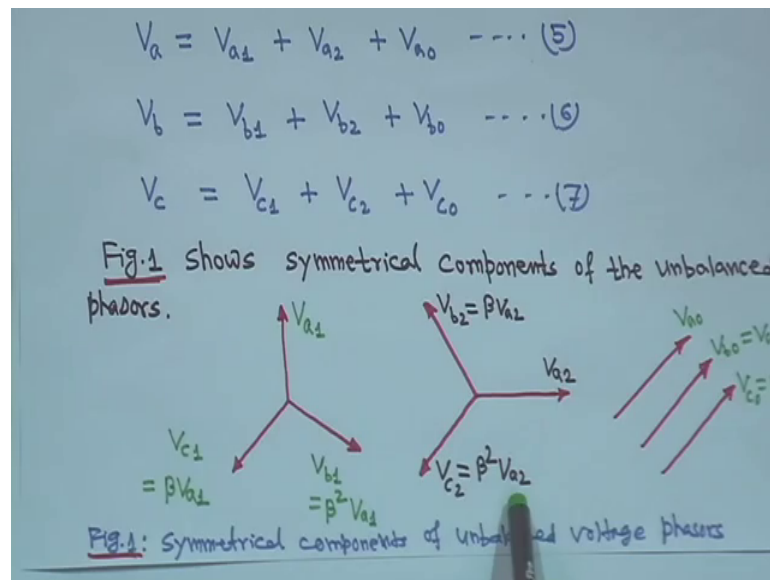 Va = Va1 + Va2 + Va0 ---- (5)
Vb = Vb1 + Vb2 + Vb0 ---- (6)
Vc = Vc1 + Vc2 + Vc0 --- (7)
Fig.1 shows symmetrical components of the unbalanced
phasors.
Va1
Vc1
= βVa1
Vb1
= β²Va1
Vb2 = βVa2
Va2
Vc2 = β²Va2
Va0
Vb0 = V
Vc0 =
Fig.1: Symmetrical components of unbalanced voltage phasors